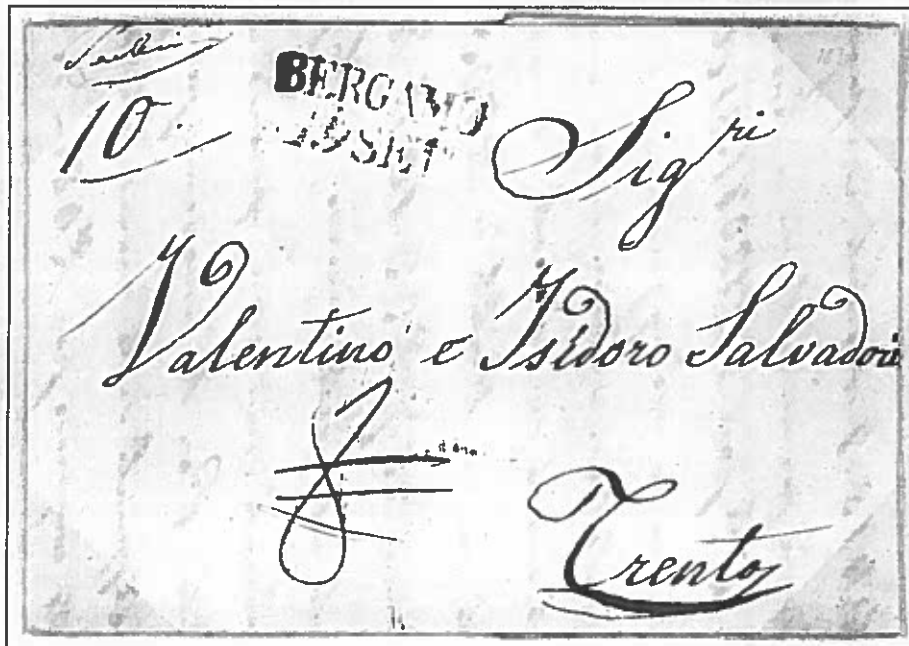 10.
BERGAMO
19 SET
Sigri
Valentino e Isidoro Salvadori
Trento